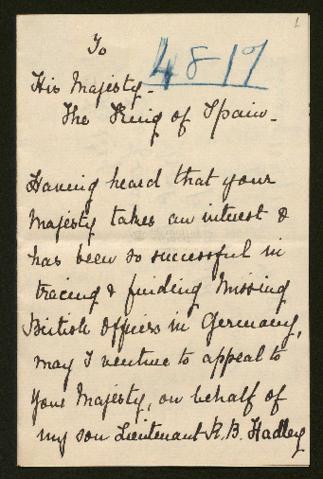 1
To
4817
His Majesty-
The King of Spain-
Having heard that your
Majesty takes an interest &
has been so successful in
tracing & finding missing
British Officers in Germany,
may I venture to appeal to
Your Majesty, on behalf of
my son Lieutenant R. B. Hadley